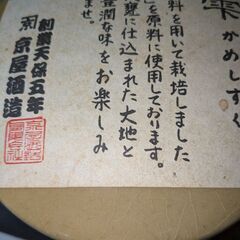 雫
かめしずく
料を用いて栽培しました
を原料に使用しております。
甕に仕込まれた大地と
豊潤な味をお楽しみ
ませ。
創業天保五年
京屋酒造